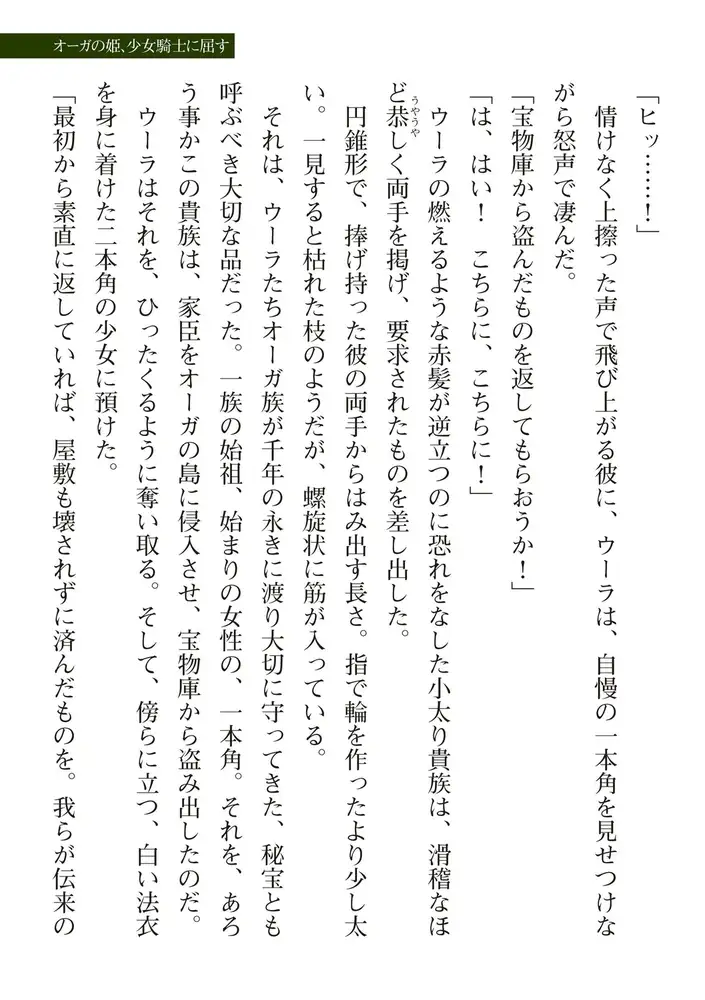 オーガの姫、少女騎士に屈す
「ヒッ……！」
情けなく上擦った声で飛び上がる彼に、ウーラは、自慢の一本角を見せつけな
がら怒声で凄んだ。
「宝物庫から盗んだものを返してもらおうか！」
「は、はい！　こちらに、こちらに！」
ウーラの燃えるような赤髪が逆立つのに恐れをなした小太り貴族は、滑稽なほ
ど恭しく両手を掲げ、要求されたものを差し出した。
うやうや
円錐形で、捧げ持った彼の両手からはみ出す長さ。指で輪を作ったより少し太
い。一見すると枯れた枝のようだが、螺旋状に筋が入っている。
それは、ウーラたちオーガ族が千年の永きに渡り大切に守ってきた、秘宝とも
呼ぶべき大切な品だった。一族の始祖、始まりの女性の、一本角。それを、あろ
う事かこの貴族は、家臣をオーガの島に侵入させ、宝物庫から盗み出したのだ。
ウーラはそれを、ひったくるように奪い取る。そして、傍らに立つ、白い法衣
を身に着けた二本角の少女に預けた。
「最初から素直に返していれば、屋敷も壊されずに済んだものを。我らが伝来の